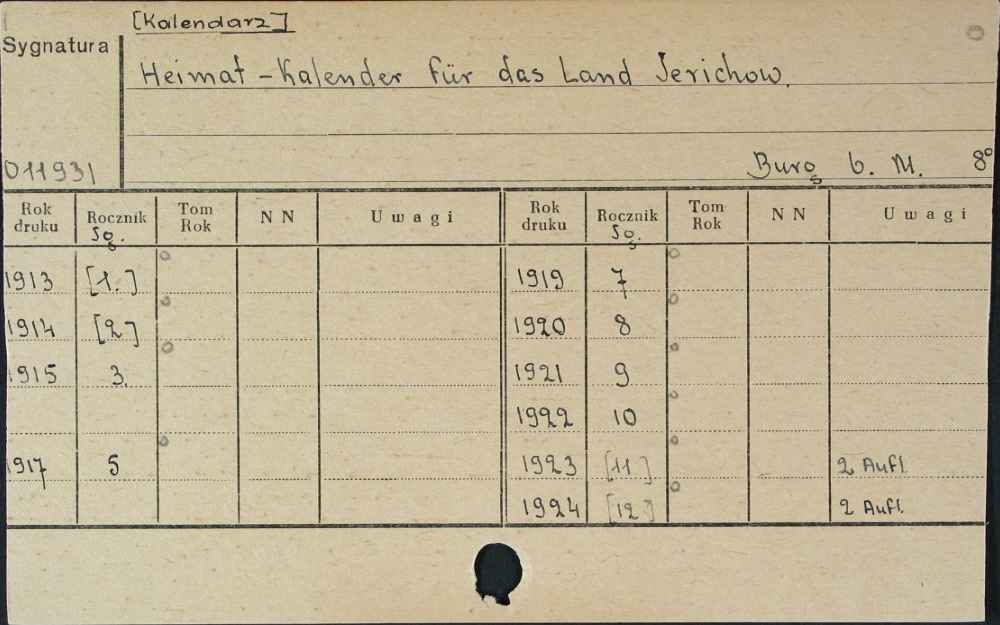 [Kalendarz]
Sygnatura
Heimat-Kalender für das Land Jerichow.
011931
Burg b. M. 8°
Rok druku Rocznik Jg. Tom Rok NN Uwagi Rok druku Rocznik Jg. Tom Rok NN Uwagi
1913 [1.] 1919 7
1914 [2] 1920 8
1915 3. 1921 9
1922 10
1917 5 1923 [11] 2 Aufl.
1924 [12] 2 Aufl.